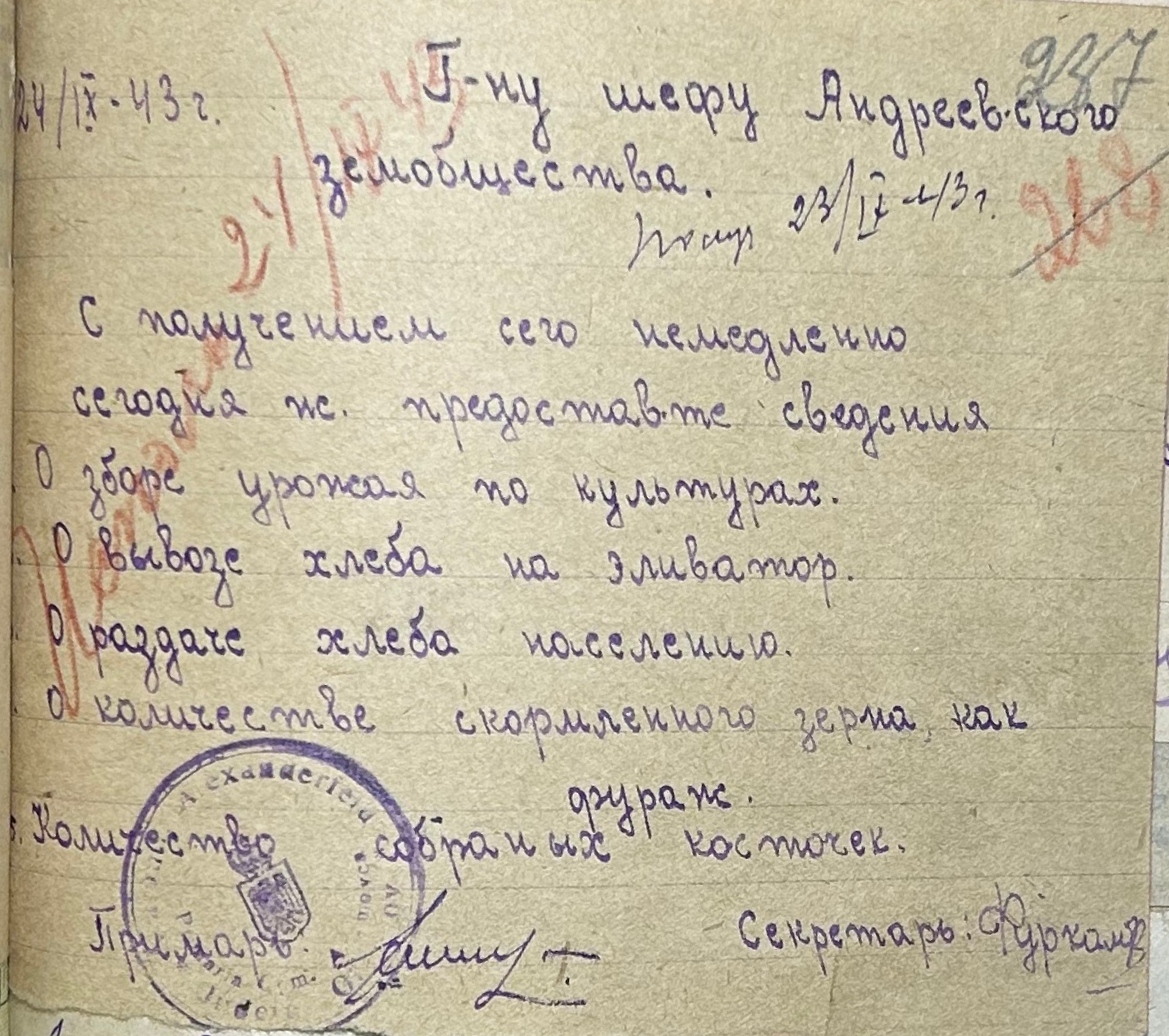 237
24/IX-43 г.
Г-ну шефу Андреевского
земобщества.
23/IX-43 г.
268
С получением сего немедленно
сегодня же. предоставте сведения
О зборе урожая по культурах.
О вывозе хлеба на эливатор.
О раздаче хлеба населению.
О количестве скормленного зерна, как
фураж.
5. Количество собраных косточек.
Примарь:
Секретарь: